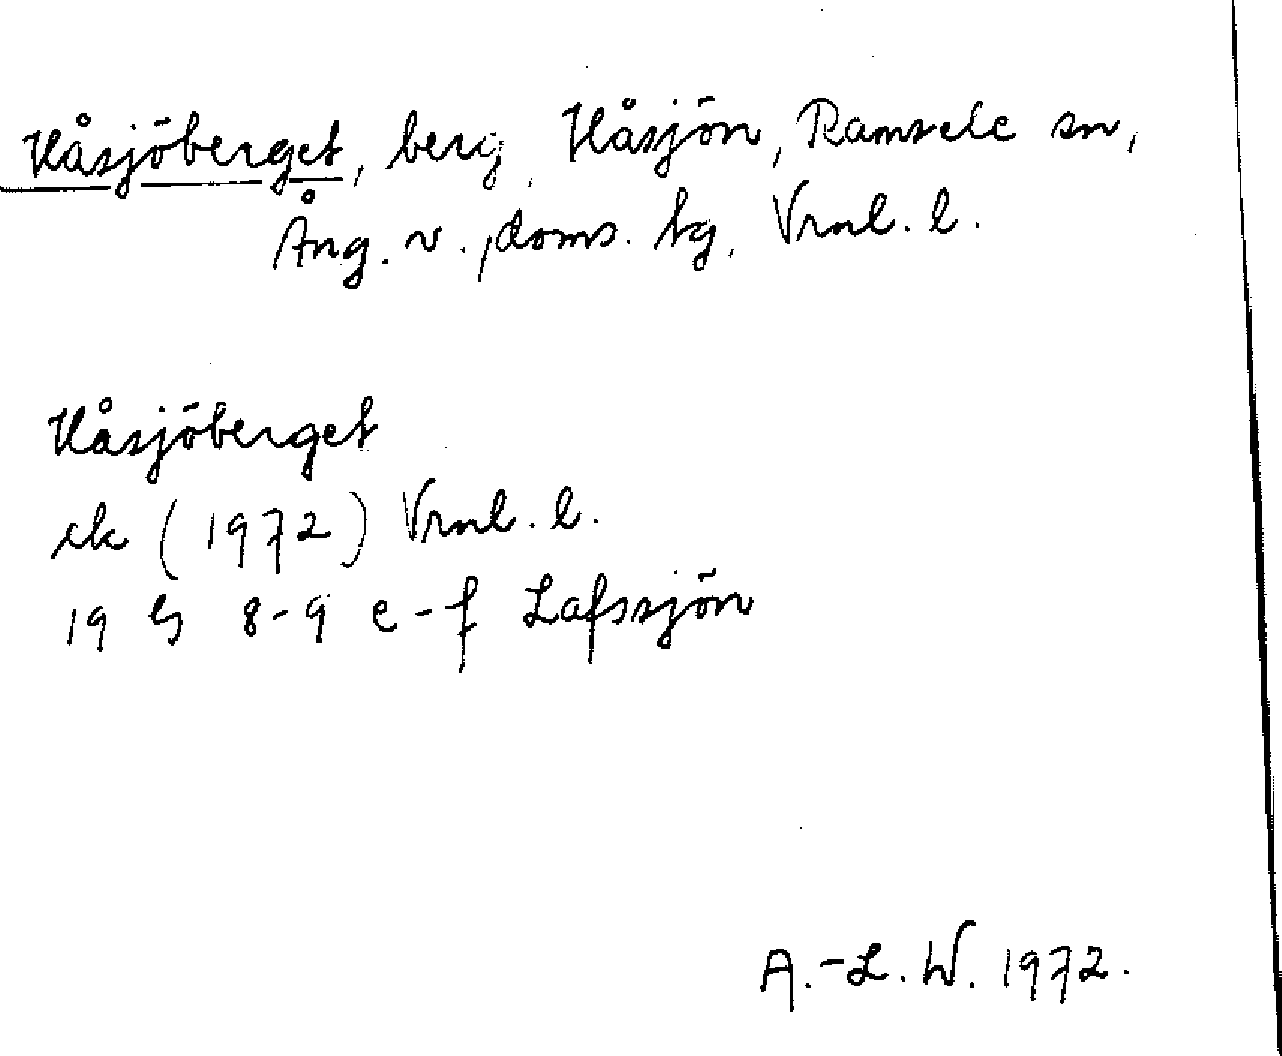 Håsjöberget, berg, Håsjön, Ramsele sn,
Ång. v., doms. tg, Vrnl. l.
Håsjöberget
ek (1972) Vrnl. l.
19 G 8-9 e-f Lafssjön
A.-L. W. 1972.